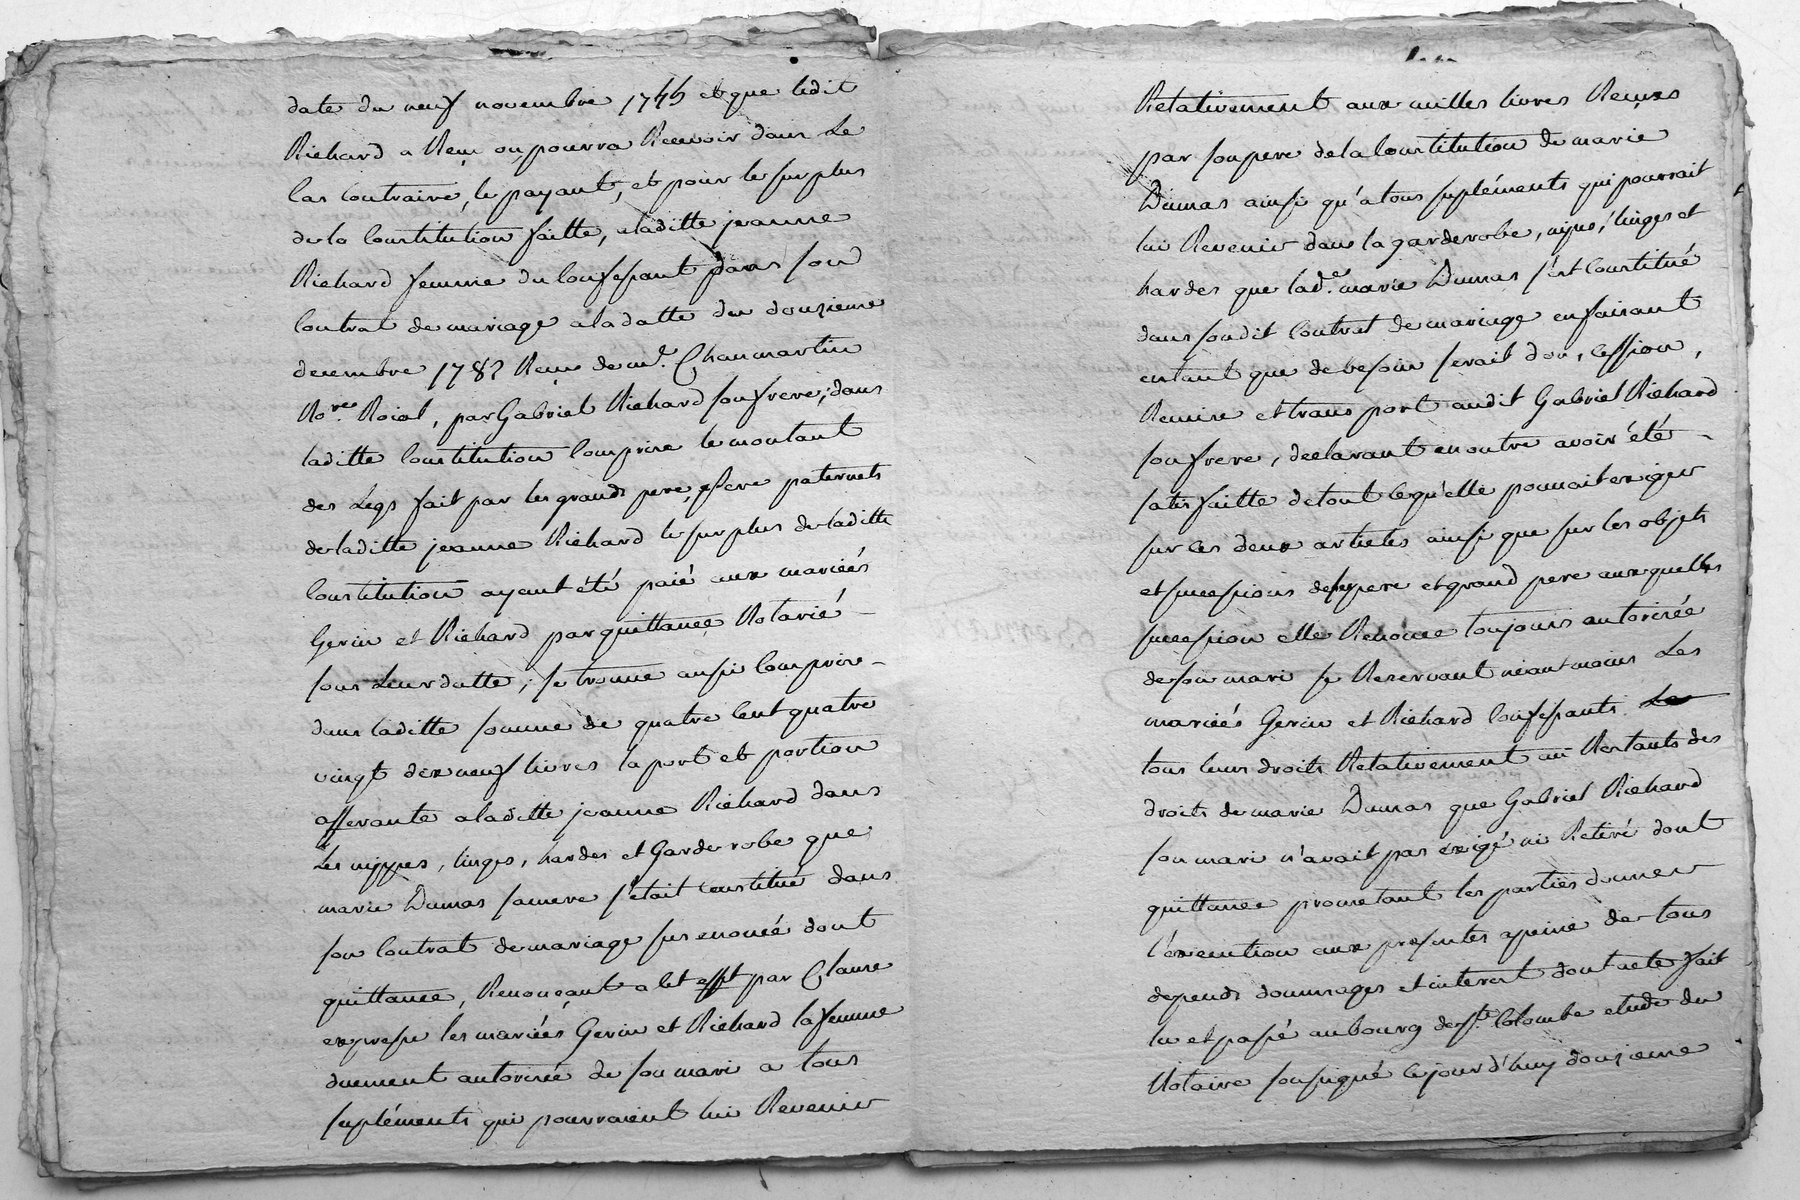 date du neuf novembre 1755 et que ledit
Richard a Reçu ou pourra Recevoir dans Le
Cas Contraire, le payant, et pour le surplus
de la Constitution faitte, a laditte jeanne
Richard femme du Confessant dans son
Contrat de mariage a la datte du douzieme
decembre 1782 Reçu de me. Chaumartin
No.re Roial, par Gabriel Richard son frere, dans
laditte Constitution Comprise le montant
des Legs fait par les grands pere, et pere paternels
de laditte jeanne Richard le surplus de laditte
Constitution ayant été paié aux mariéés
Gerin et Richard par quittance Notarié
sous Leur datte ; se trouve aussi Comprise
dans laditte somme de quatre Cent quatre
vingt dix neuf livres la part et portion
afferante a laditte jeanne Richard dans
Les nippes, linges, hardes et Garde robe que
marie Dumas sa mere s'était constitué dans
son Contrat de mariage sus enoncé dont
quittance, Renonçant a Cet effet par Clause
expresse les mariéés Gerin et Richard la femme
duement autorisée de son mari a tous
suplements qui pourraient lui Revenir
Relativement aux milles livres Reçues
par son pere de la Constitution de marie
Dumas ainsi qu'a tous supléments qui pourrait
lui Revenir dans la garderobe, nipes, linges et
hardes que lad.e marie Dumas s'est Constitué
dans son dit Contrat de mariage en faisant
entant que de besoin serait don, cession,
Remise et transport audit Gabriel Richard
son frere, declarant en outre avoir été
satisfaitte de tout ce qu'elle pouvait exiger
sur ces deux articles ainsi que sur les objets
et successions de pere et grand pere aux quelles
succession elle Renonce toujours autorisée
de son mari se Reservant néantmoins Les
mariéés Gerin et Richard Confessants
tous leurs droits Relativement au Restants des
droits de marie Dumas que Gabriel Richard
son mari n'avait pas exigé ni Retiré dont
quittance prometant les parties donner
l'execution aux presentes a peine de tous
depends dommages et interest dont acte fait
lu et passé au bourg de Ste Colombe etude du
Notaire soussigné Cejourd'huy douzieme